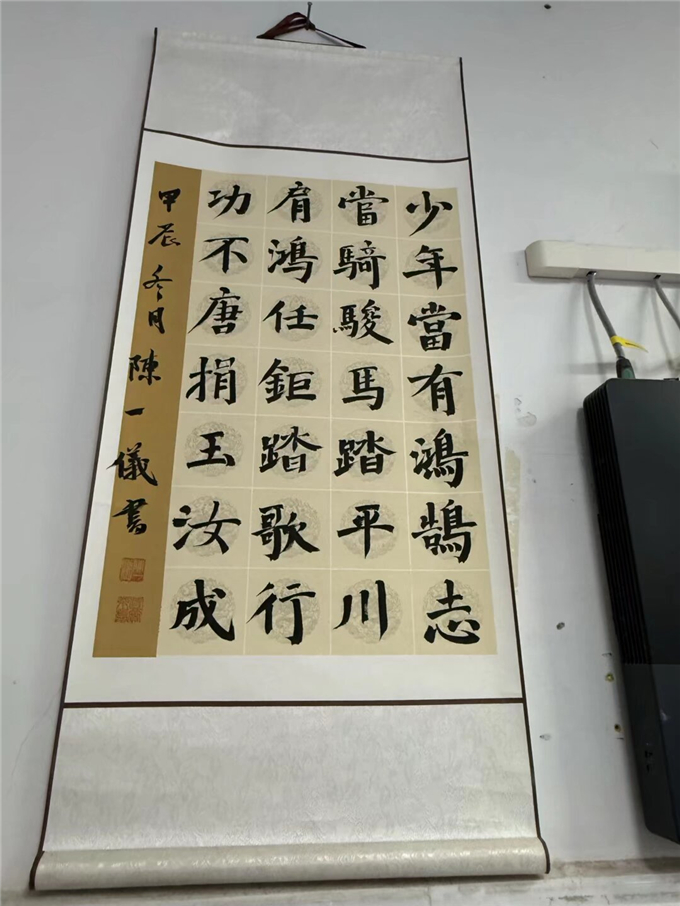 少年當有鴻鵠志
當騎駿馬踏平川
肩鴻任鉅踏歌行
功不唐捐玉汝成
甲辰冬月陳一儀書